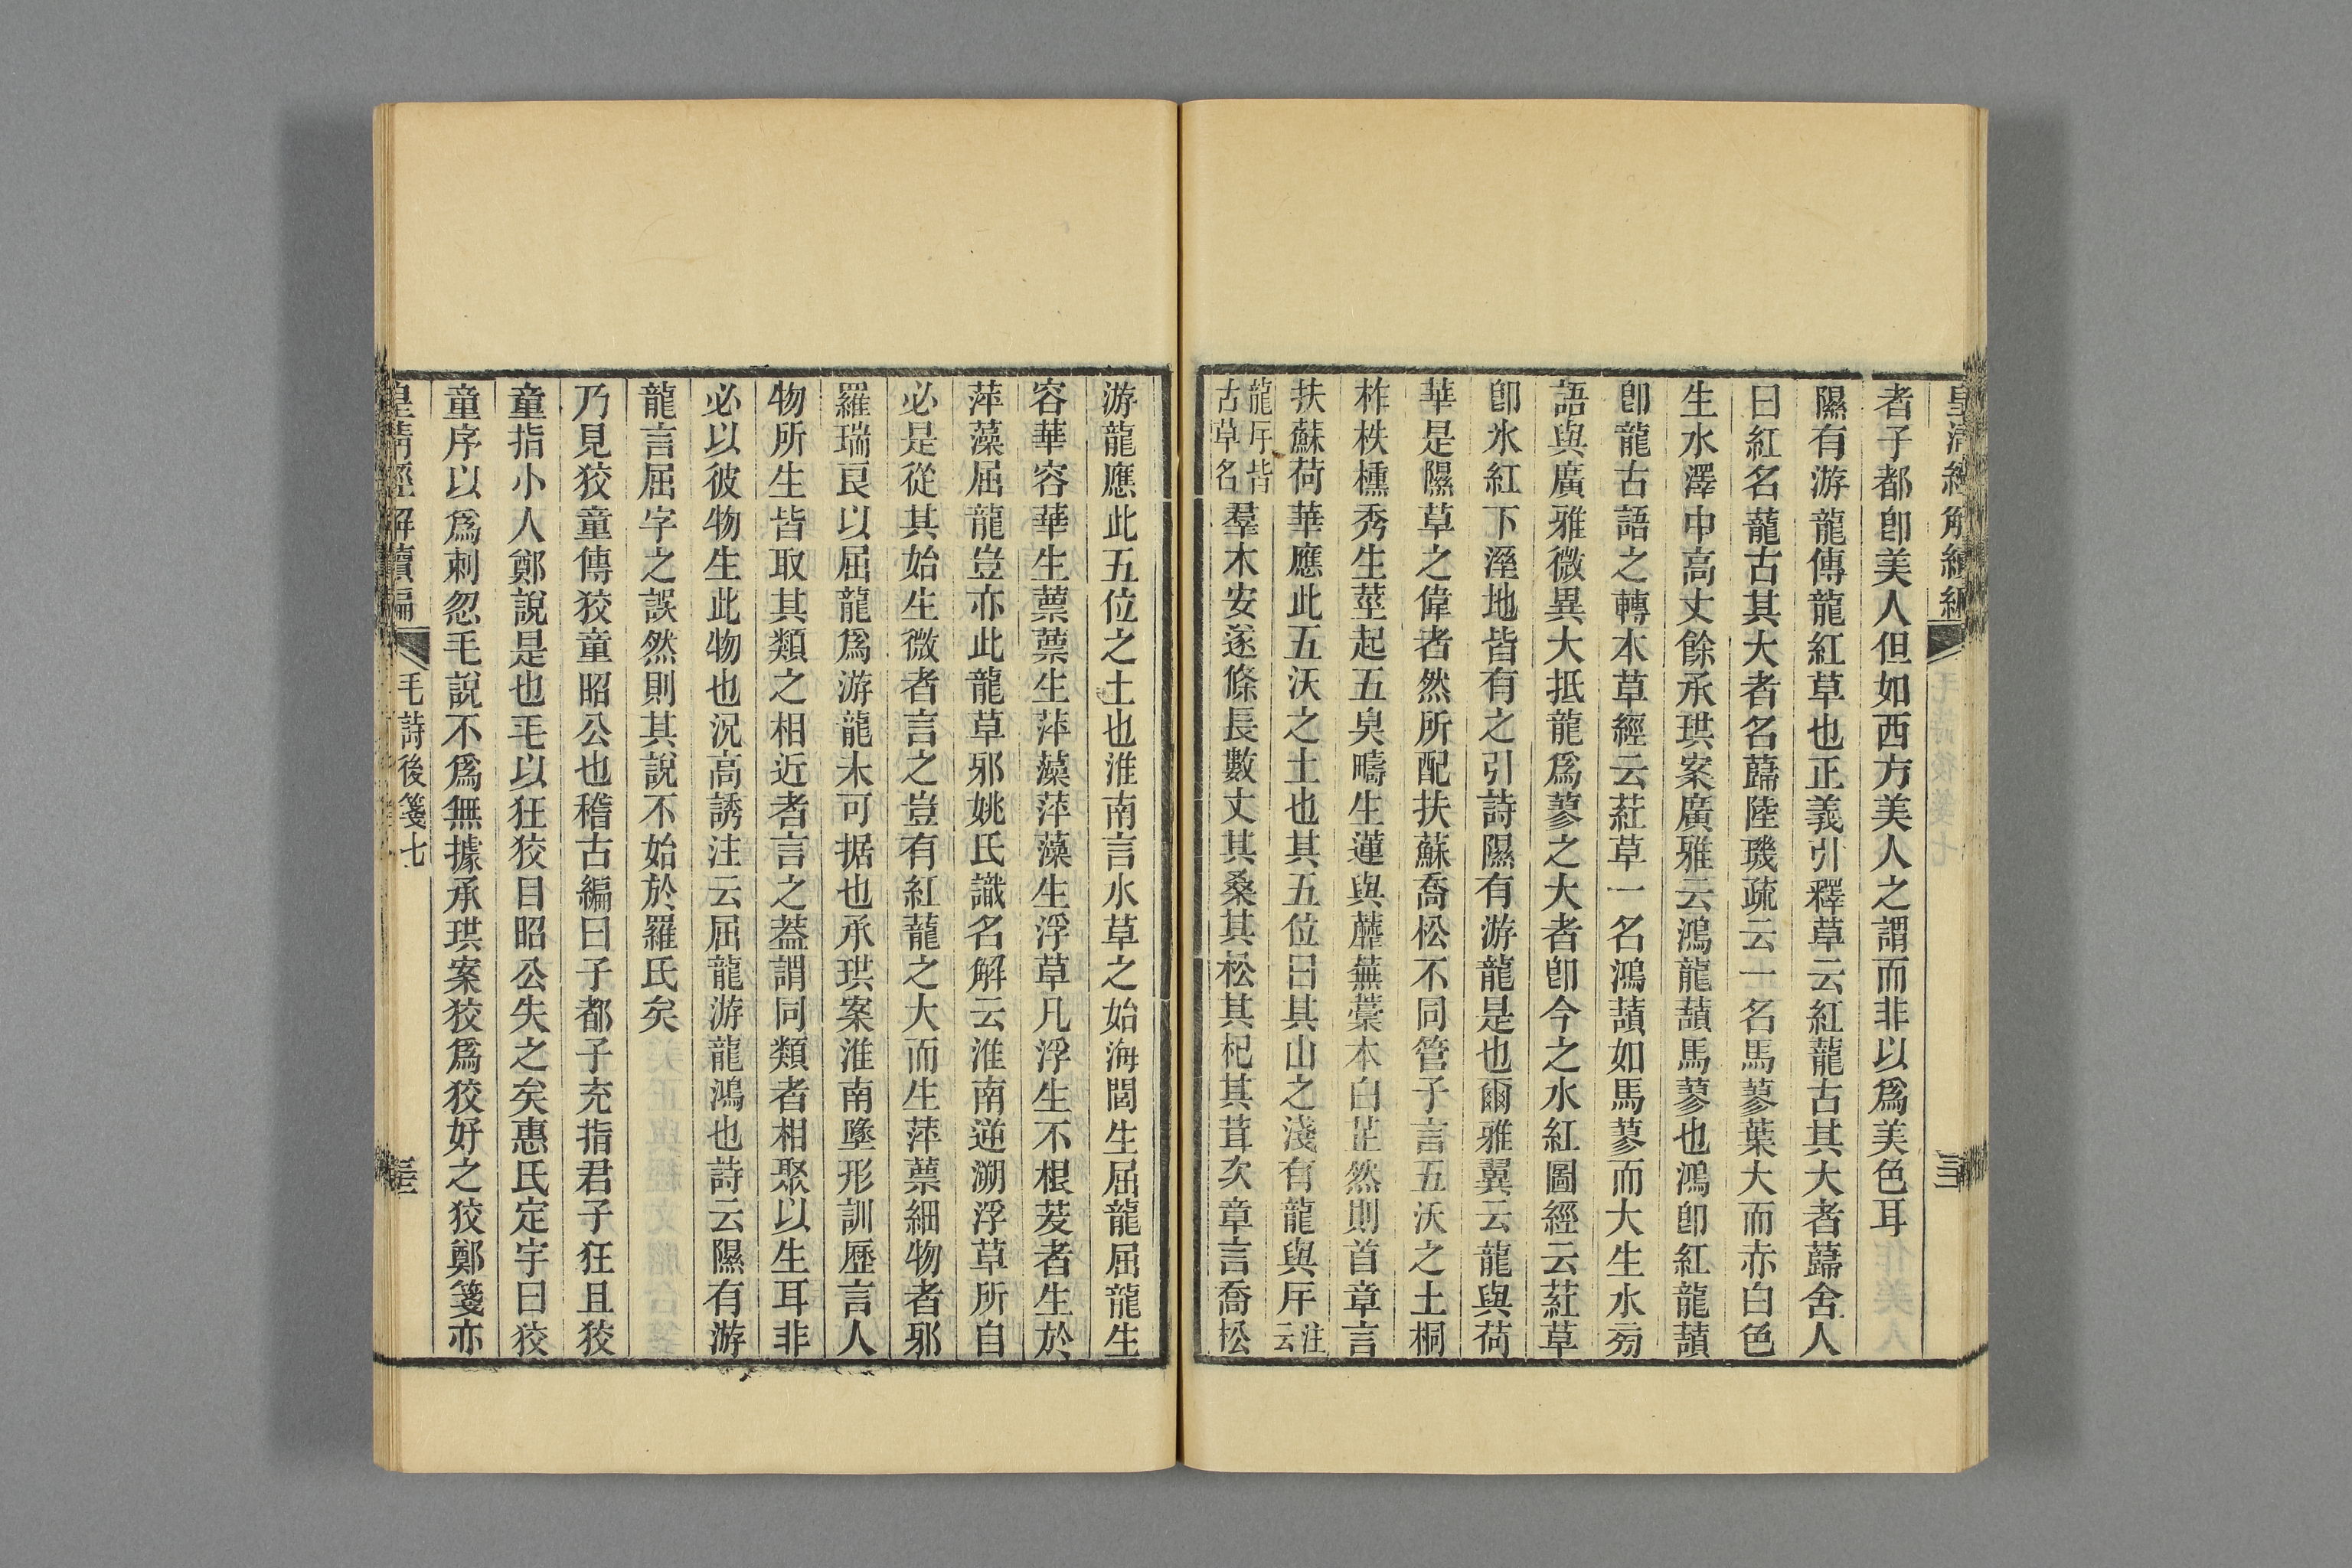 者子都卽美人但如西方美人之謂而非以爲美色耳
隰有游龍傳龍紅草也正義引釋草云紅蘢古其大者蘬舍人
曰紅名蘢古其大者名蘬陸璣疏云一名馬蓼葉大而赤白色
生水澤中高丈餘承珙案廣雅云鴻龍䕸馬蓼也鴻卽紅龍䕸
卽龍古語之轉本草經云葒草一名鴻䕸如馬蓼而大生水旁
語與廣雅微異大抵龍爲蓼之大者卽今之水紅圖經云葒草
卽水紅下溼地皆有之引詩隰有游龍是也爾雅翼云龍與荷
華是隰草之偉者然所配扶蘇喬松不同管子言五沃之土桐
柞枎櫄秀生莖起五臭疇生蓮與蘪蕪藁本白芷然則首章言
扶蘇荷華應此五沃之土也其五位曰其山之淺有龍與斥注云
龍斥皆古草名羣木安遂條長數丈其桑其松其杞其茸次章言喬松
游龍應此五位之土也淮南言水草之始海閭生屈龍屈龍生
容華容華生蔈蔈生萍藻萍藻生浮草凡浮生不根茇者生於
萍藻屈龍豈亦此龍草邪姚氏識名解云淮南逆溯浮草所自
必是從其始生微者言之豈有紅蘢之大而生萍蔈細物者邪
羅瑞良以屈龍爲游龍未可据也承珙案淮南墬形訓歷言人
物所生皆取其類之相近者言之蓋謂同類者相聚以生耳非
必以彼物生此物也況高誘注云屈龍游龍鴻也詩云隰有游
龍言屈字之誤然則其說不始於羅氏矣
乃見狡童傳狡童昭公也稽古編曰子都子充指君子狂且狡
童指小人鄭說是也毛以狂狡目昭公失之矣惠氏定宇曰狡
童序以爲刺忽毛說不爲無據承珙案狡爲狡好之狡鄭箋亦
皇清經解續編 毛詩後箋七